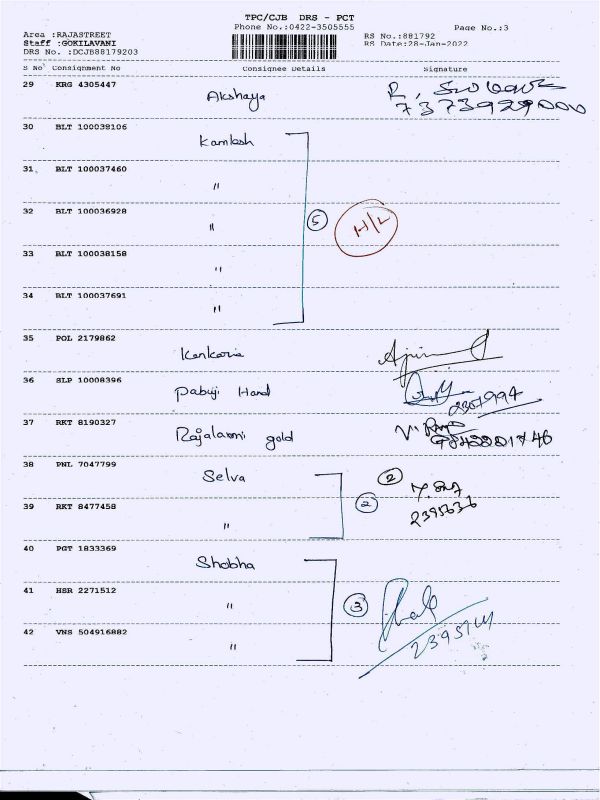 TPC/CJB DRS - PCT
Phone No.:0422-3505555
Page No.:3
Area :RAJASTREET
Staff :GOKILAVANI
DRS No. :DCJB88179203
RS No.:881792
RS Date:28-Jan-2022
S No Consignment No Consignee Details Signature
29 KRG 4305447 Akshaya
30 BLT 100039106 Kamlesh
31 BLT 100037460 "
32 BLT 100036928 " 5 H/L
33 BLT 100038158 "
34 BLT 100037691 "
35 POL 2179862 Kankaria
36 SLP 10008396 Pabuji Hand
37 RKT 8190327 Rajalaxmi gold
38 PNL 7047799 Selva 2
39 RKT 8477458 " 2 2395636
40 PGT 1833369 Shobha
41 HSR 2271512 " 3
42 VNS 504916882 "